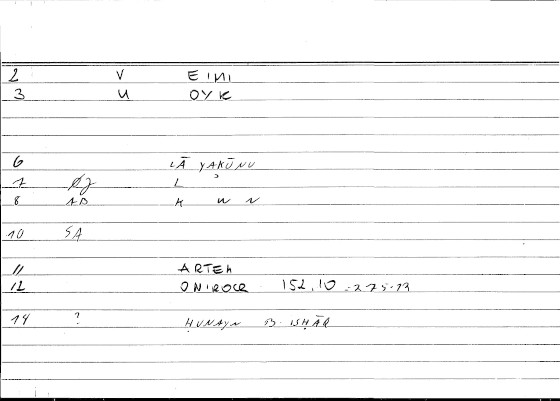 2 V EINI
3 U OYK
6 LĀ YAKŪNU
7 ØJ L ʾ
8 AD K W N
10 SA
11 ARTEM
12 ONIROCR 152,10 = 275.13
14 ? ḤUNAYN B. ISḤĀQ